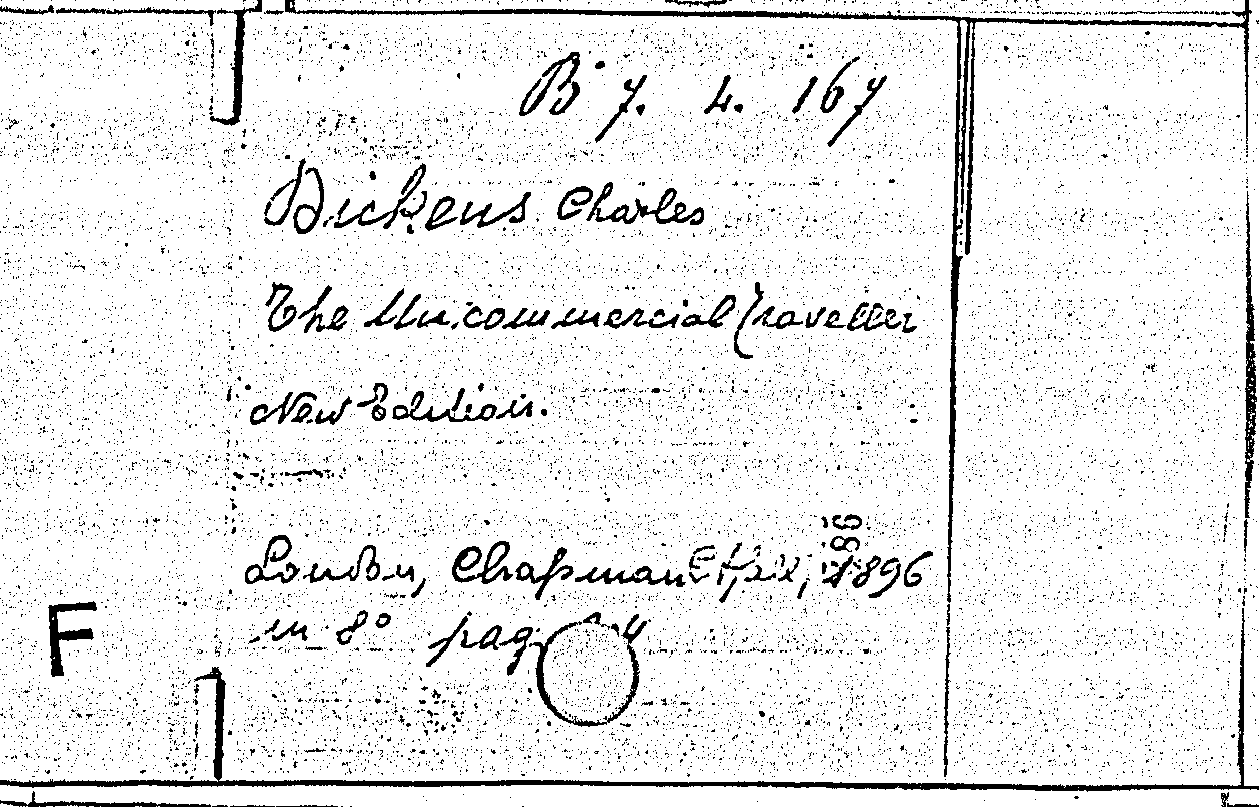 B 7. 4. 167
Dickens Charles
The Uncommercial Traveller
New Edition.
London, Chapman 1896
in 8° pag
F